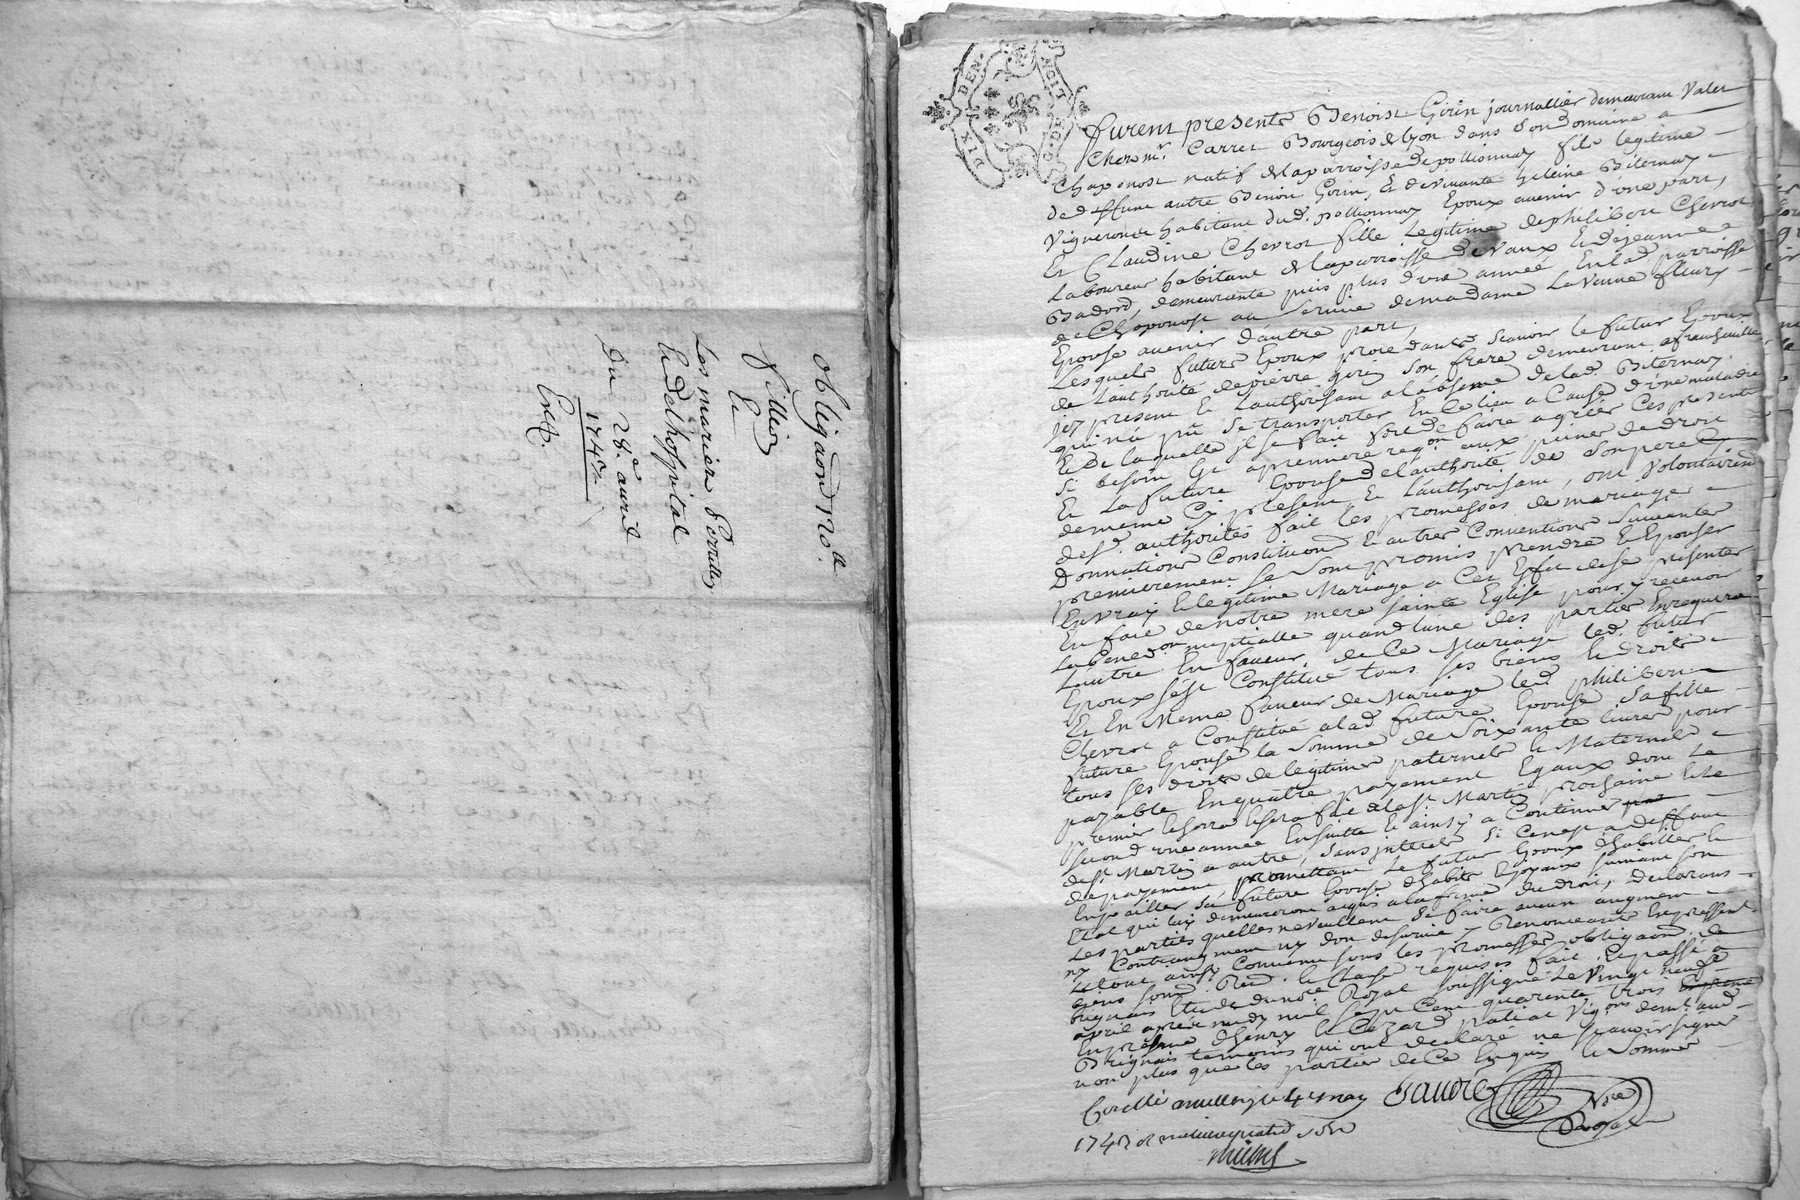 obligaon Nolle
fillion
Et
Les mariez
Et Delhospital
Du 28e avril
1747
Exp.
DIX DEN.
furent presents Benoist Girin journallier demeurant Valet
Chez mr. Carret Bourgeois de lyon dans Son domaine a
Chaponost natif de la parroisse de pollionnay fils legitime
de deffunt autre Benoit Girin, Et de vivante heleine Biternay
Vigneronne habitant dud. pollionnay Epoux avenir d'une part,
Et Claudine Chevrot fille Legitime de philibert Chevrot
Laboureur habitant de la parroisse de Vaux Et de jeanne
Badord, demeurante puis plus d'une année En lad. parroisse
de Chaponost au Service de madame La Veuve fleury
Epouse avenir d'autre part,
Lesquels futurs Epoux procedants Scavoir le futur Epoux
de L'authorité de pierre girin Son frere demeurant a francheville
icy present Et L'authorisant a l'absence de lad. Biternay
qui n'a pû Se transporter En Ce lieu a Cause d'une maladie
Et De laquelle il Se fait fort de faire agréér Ces presentes
Si besoin Est a premiere reqon aux peines de droit
Et La future Epouse de l'authorité de Son pere
de meme Cy present Et L'authorisant, ont Volontairemt
desd. authorités fait les promesses de mariage
Donnations Constitutions Et autres Conventions Suivantes
premierement Se Sont promis prendre Et Epouser
En vray Et legitime Mariage a Cet Effet de se presenter
En face de notre mere Sainte Eglise pour y recevoir
La Benedon nuptialle quand l'une des parties En requerra
L'autre En faveur de Ce Mariage led. futur
Epoux s'est Constitué tous Ses biens Et droits
Et En Meme faveur de Mariage led. philibert
Chevrot a Constitué a lad. future Epouse Sa fille
future Epouse la Somme de Soixante livres pour
tous Ses droits de legitimes paternels Et Maternels
payable En quatre payements Egaux dont Le
premier Echerra Et Sera fait a la St. Martin prochaine Et Le
Second une année Ensuitte Et ainsy a Continuer
de St. Martin a autre, Sans interets Si Ce n'est a deffaut
de payement, promettant Le futur Epoux d'habiller Et
Enjoailler Sa future Epouse d'habits Et joyaux Suivant Son
Etat qui luy demeureront acquis a la forme du droit, declarans
Les parties qu'elles ne veullent Se faire aucun augment
ny Contraugment ny don de Survie y Renonceant Expressemt
Et tout ainsy Convenu Sous les promesses obligaons. de
biens Soumd. Rend. Et Clause requises fait Et passé a
brignais Etude du nore Royal Soussigné Le Vingt neuf
avril après midy mil Sept Cent quarente trois
En presence d'henry Et Cezard patiat Vigons demt. aud.
Brignais temoins qui ont declaré ne Scavoir Signer
non plus que les parties de Ce Enquis Et Sommés
Corollé a le 4e may
1743
Nore
Royal